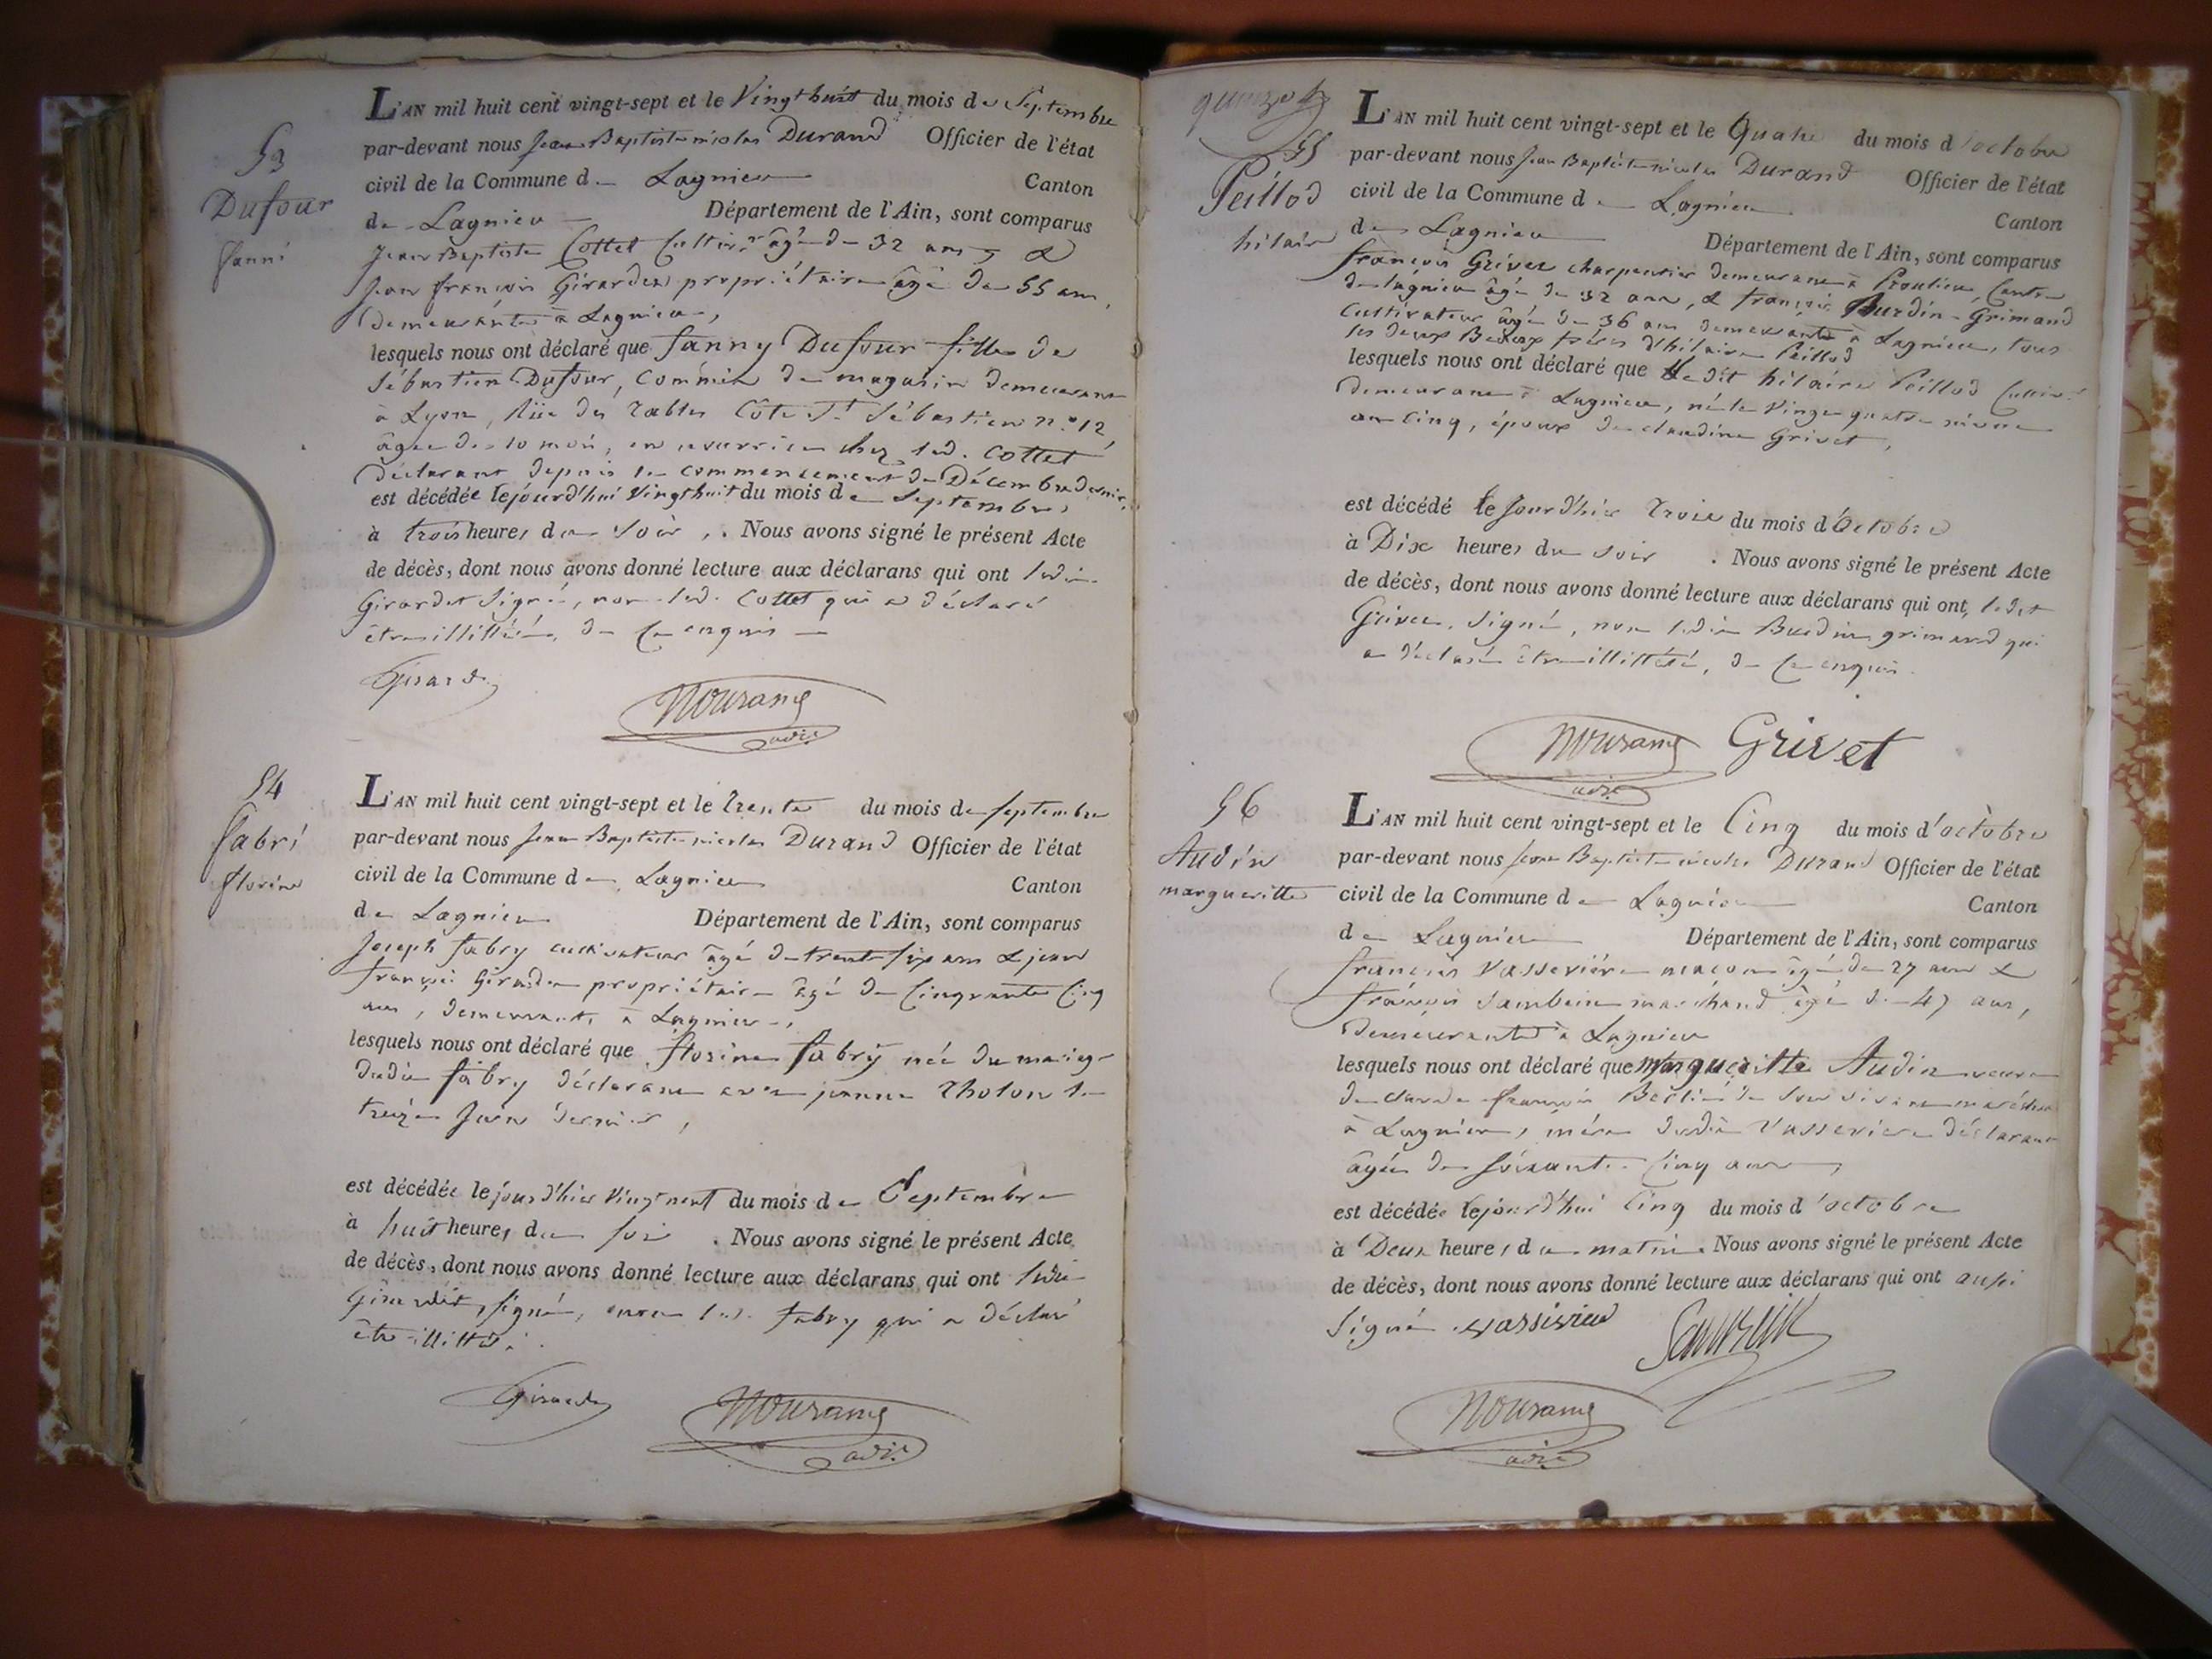 53
Dufour
fanni
L'AN mil huit cent vingt-sept et le Vingthuit du mois de Septembre
par-devant nous Jean Baptiste nicolas Durand Officier de l'état
civil de la Commune de Lagnieu Canton
de Lagnieu Département de l'Ain, sont comparus
Jean Baptiste Cottet Cultivr agé de 32 ans, &
Jean françois Girardet propriétaire agé de 55 ans,
Demeurants à Lagnieu,
lesquels nous ont déclaré que fanny Dufour fille de
Sébastien Dufour, Commis de magasin demeurant
à Lyon, Rüe des Tables Côte St Sébastien n.o 12,
âgée de 10 mois, en nourrice chez led. Cottet
Déclarant depuis le commencement de Décembre dernier,
est décédée lejourd'hui Vingthuit du mois de Septembre,
à trois heures du Soir,. Nous avons signé le présent Acte
de décès, dont nous avons donné lecture aux déclarans qui ont ledit
Girardet Signé, non led. Cottet qui a déclaré
être illittéré, de ce enquis
Girardet
NDurand
adj.
54
fabri
florine
L'AN mil huit cent vingt-sept et le Trente du mois de septembre
par-devant nous Jean Baptiste nicolas Durand Officier de l'état
civil de la Commune de Lagnieu Canton
de Lagnieu Département de l'Ain, sont comparus
Joseph fabry cultivateur âgé de trente six ans & jean
françois Girardet propriétaire agé de Cinquante Cinq
ans, demeurants à Lagnieu,
lesquels nous ont déclaré que florine fabry née du mariage
dudit fabry déclarant avec jeanne Tholon le
treize Juin dernier,
est décédée le jour d'hier Vingt neuf du mois de Septembre
à huit heures du soir. Nous avons signé le présent Acte
de décès, dont nous avons donné lecture aux déclarans qui ont ledit
Girardet, signé, non led. fabry qui a déclaré
être illitté.
Girardet
NDurand
adj.
55
Peillod
hilaire
L'AN mil huit cent vingt-sept et le Quatre du mois d'octobre
par-devant nous Jean Baptiste nicolas Durand Officier de l'état
civil de la Commune de Lagnieu Canton
de Lagnieu Département de l'Ain, sont comparus
françois Grivet charpentier demeurant à Proulieu, Canton
de lagnieu âgé de 32 ans, & françois Burdin-Grimand
Cultivateur âgé de 36 ans demeurants à Lagnieu, tous
les deux Beaux frères d'hilaire Peillod
lesquels nous ont déclaré que le dit hilaire Peillod Cultivr
demeurant à Lagnieu, né le Vingt quatre nivose
an Cinq, époux de claudine Grivet,
est décédé le jour d'hier Trois du mois d'Octobre
à Dix heures du soir. Nous avons signé le présent Acte
de décès, dont nous avons donné lecture aux déclarans qui ont, ledit
Grivet, signé, non ledit Burdin grimand qui
a déclaré être illittéré, de ce enquis.
NDurand
adj.
Grivet
56
Audin
margueritte
L'AN mil huit cent vingt-sept et le Cinq du mois d'octobre
par-devant nous Jean Baptiste nicolas Durand Officier de l'état
civil de la Commune de Lagnieu Canton
de Lagnieu Département de l'Ain, sont comparus
françois Vasseviére maçon âgé de 27 ans &
françois marchand âgé de 47 ans,
demeurants à Lagnieu
lesquels nous ont déclaré que Margueritte Audin veuve
de claude françois de son vivant
à Lagnieu, mére dudit Vasseviere déclarant
âgée de soixante Cinq ans,
est décédée lejourd'hui Cinq du mois d'octobre
à Deux heures du matin. Nous avons signé le présent Acte
de décès, dont nous avons donné lecture aux déclarans qui ont aussi
Signé.
NDurand
adj.